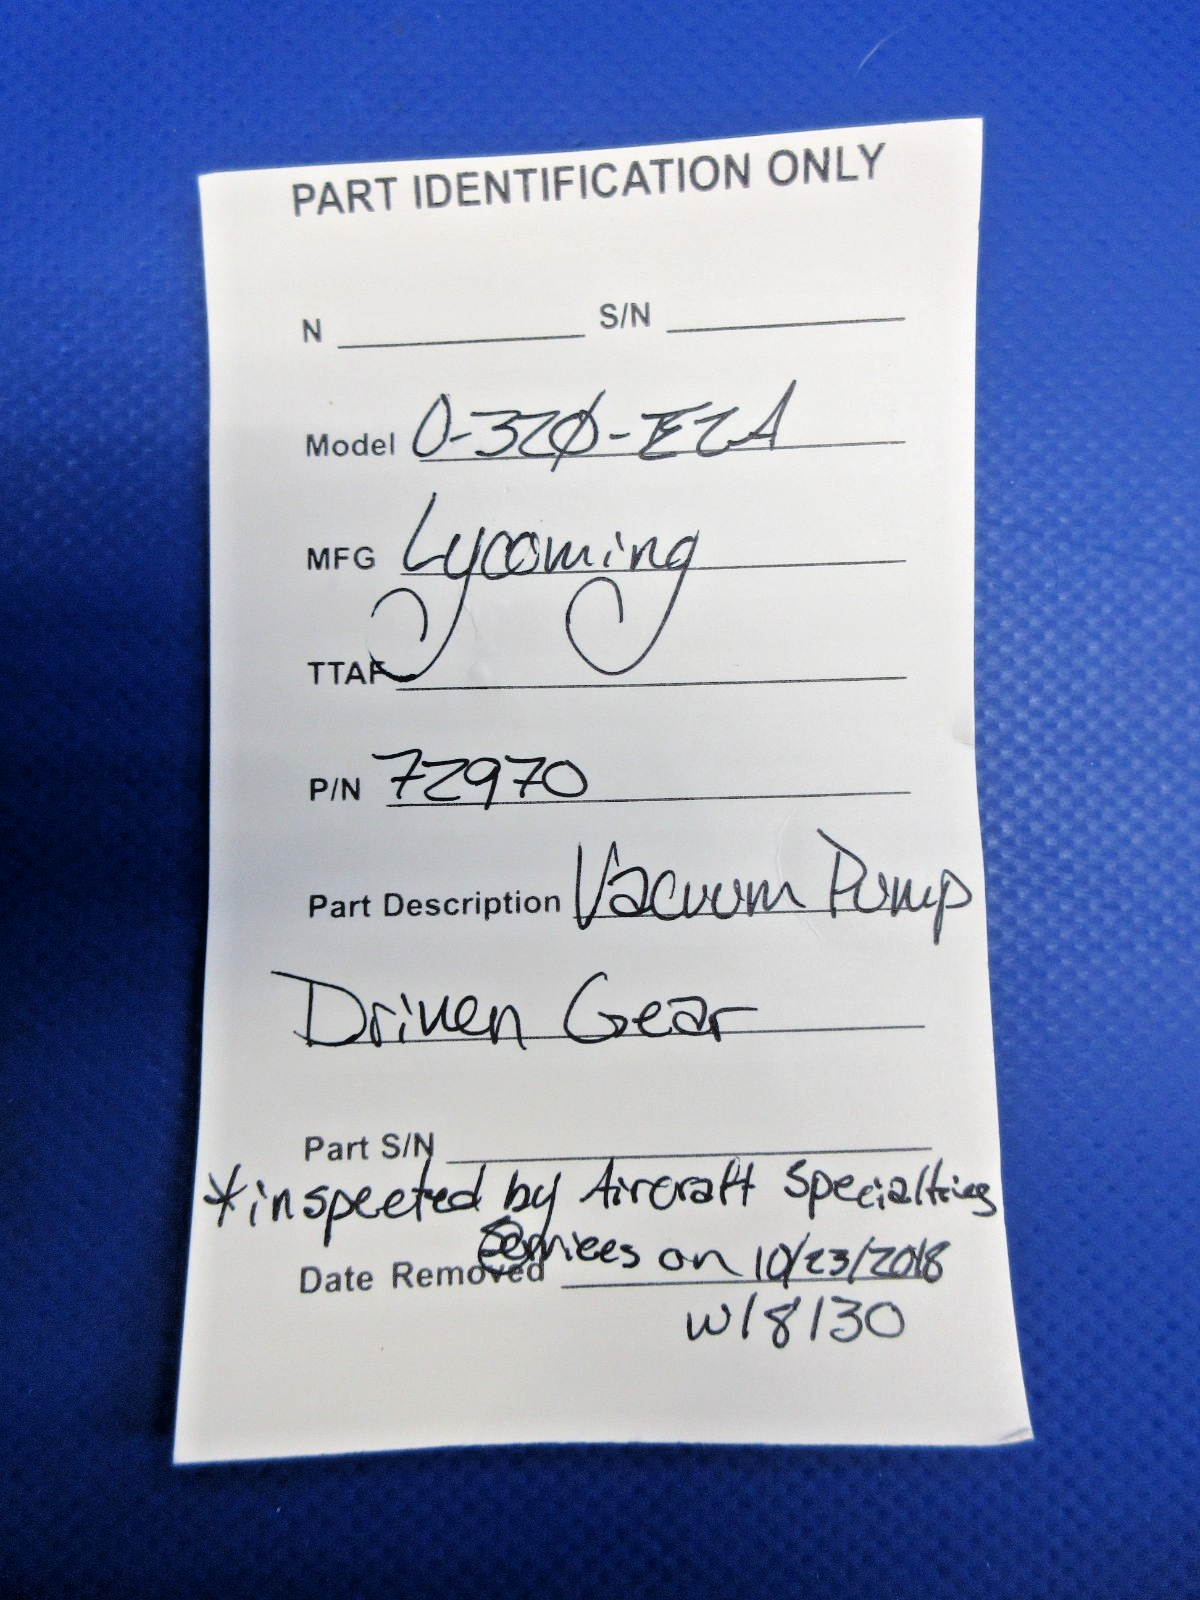 PART IDENTIFICATION ONLY
N S/N
Model O-320-E2A
MFG Lycoming
TTAF
P/N 72970
Part Description Vacuum Pump
Driven Gear
Part S/N
*inspected by Aircraft Specialties
Services on 10/23/2018
Date Removed
w/8130